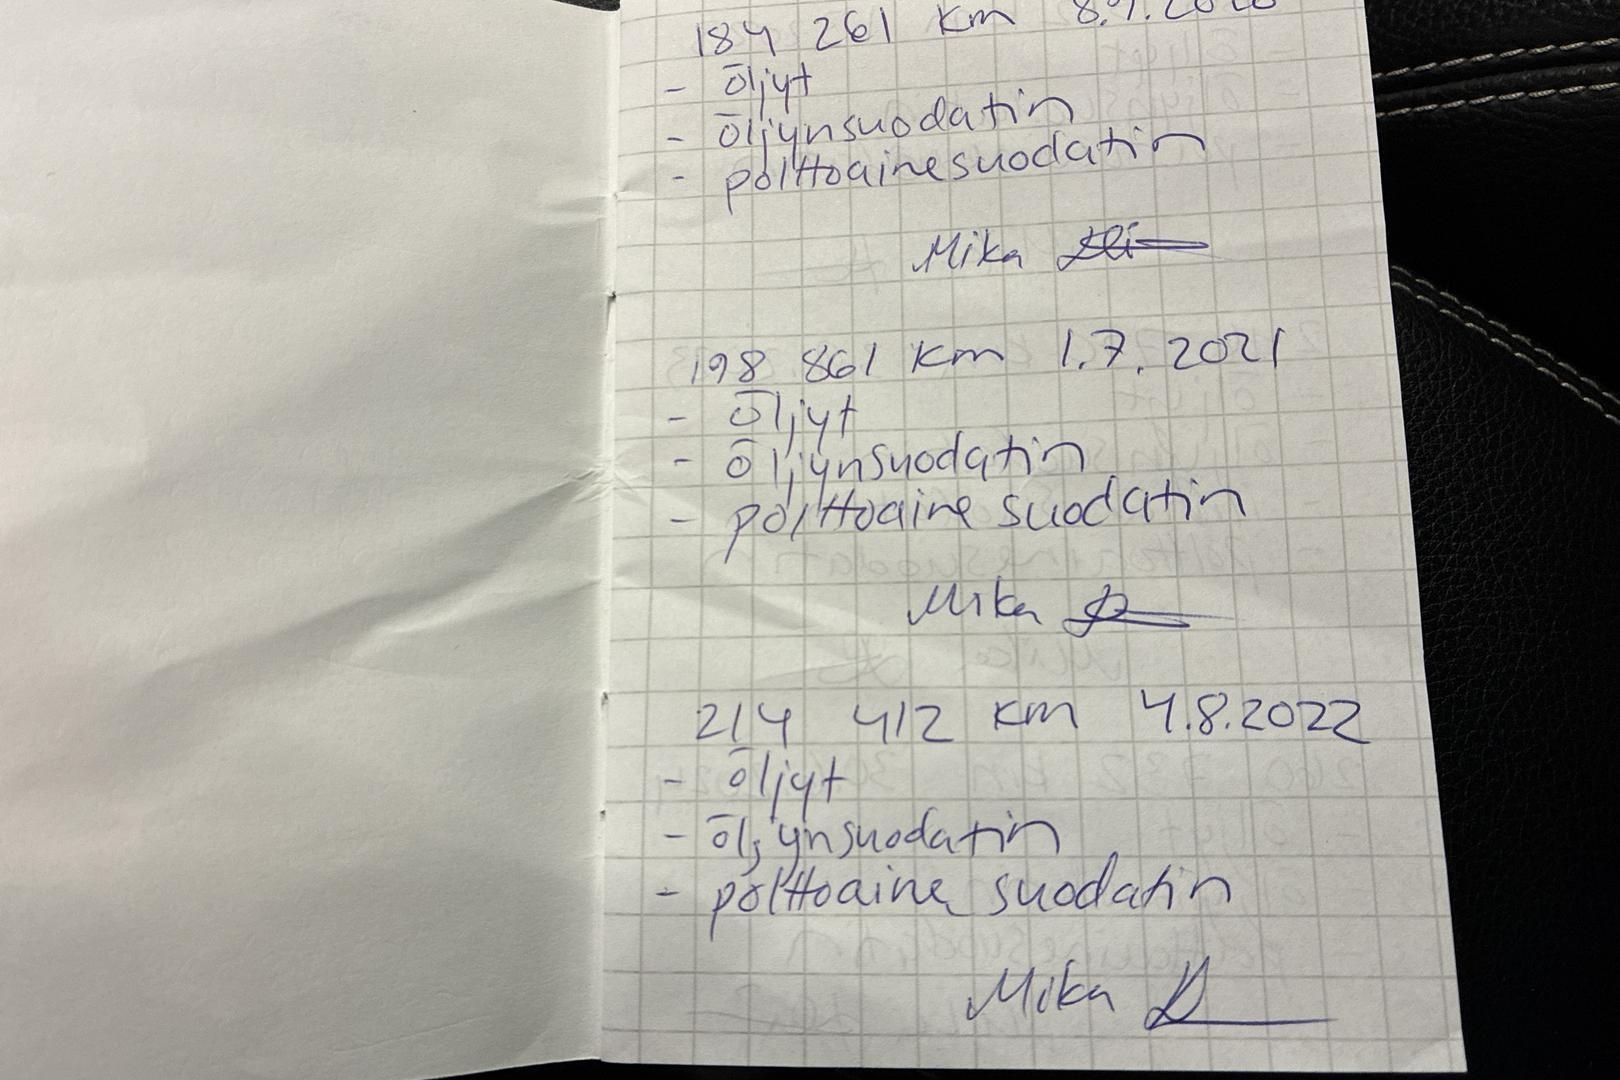 184 261 km 8.9.2020
- öljyt
- öljynsuodatin
- polttoainesuodatin
Mika
198 861 km 1.7.2021
- öljyt
- öljynsuodatin
- polttoaine suodatin
Mika
214 412 km 4.8.2022
- öljyt
- öljynsuodatin
- polttoaine suodatin
Mika